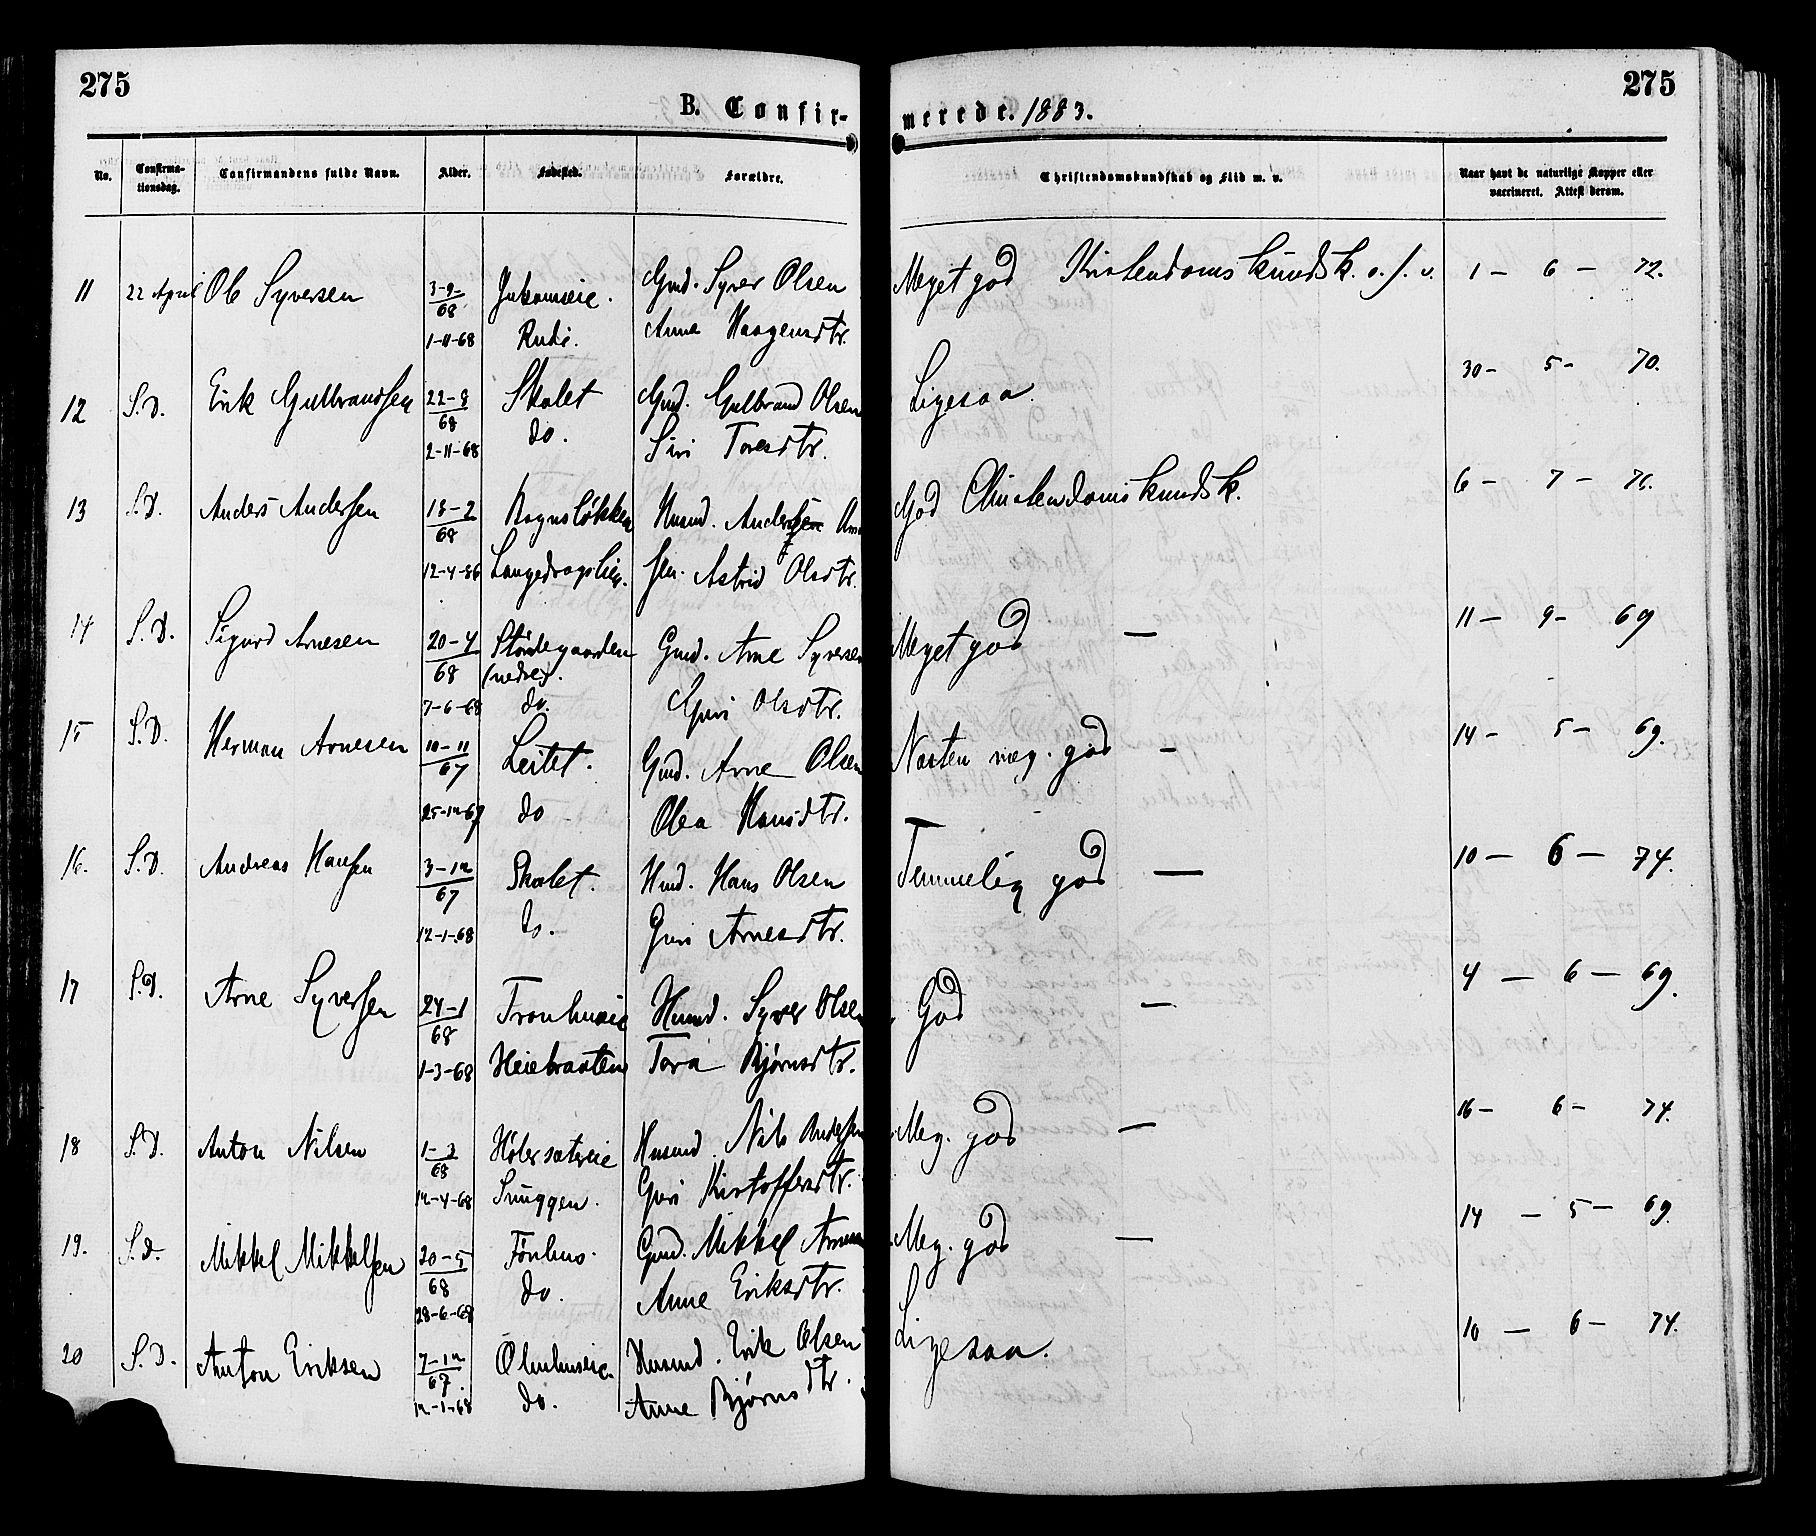 275
275
B. Confir-
merede. 1883.
No.
Confirma-
tionsdag.
Confirmandens fulde Navn.
Alder.
Fødested.
Forældre.
Christendomskundskab og Flid m. v.
Naar havt de naturlige Kopper eller
vaccineret. Attest derom.
11 22 April Ole Syversen 3-9 Gmd. Syver Olsen Meget god Kristendomskundsk. o. f. v. 1 - 6 - 72.
68
1-11-68 Rudi. Anne Haagensdtr.
12 S.D. Erik Gulbrandsen 22-8 Skolet Gmd. Gulbrand Olsen Ligesaa. 30- 5- 70.
68
2-11-68 do. Siri Toresdtr.
13 S.D. Anders Andersen 18-2 Husmd. God Christendomskundsk. 6 - 7 -
68
12-4- sen. Astrid Olsdtr.
14 S.D. Sigurd Arnesen 20-4 Gmd. Arne Syversen Meget god — 11 - 9 - 69
68 (nedre).
7-6-68 do. Guri Olsdtr.
15 S.D. Herman Arnesen 10-11 Leitet. Gmd. Arne Olsen Næsten meg. god - 14 - 5 - 69.
67
25-12-67 do Olea Hansdtr.
16. S.D. Andreas Hansen 3-12 Skolet. Hmd. Hans Olsen Temmelig god — 10 - 6 - 74.
67
12-1-68 do. Guri Arnesdtr.
17 S.D. Arne Syversen 24-1 Husmd. Syver Olsen God — 4 - 6 - 69.
68
1-3-68 Heiebraaten Tora Bjørnsdtr.
18 S.D. Anton Nilsen 1-2 Husmd. Nils Andersen Meg. god — 16 - 6 - 74.
68
12-4-68 Snuggen. Guri Kristoffersdtr.
19. S.D. Mikkel Mikkelsen 20-5 Fønhus. Gmd. Mikkel Arnesen Meg. god — 14 - 5 - 69.
68
28-6-68 do. Anne Eriksdtr.
20 S.D. Anton Eriksen 7-12 Olmhuseie. Husmd. Erik Olsen Ligesaa. 10 - 6 - 74.
67.
12-1-68 do. Anne Bjørnsdtr.